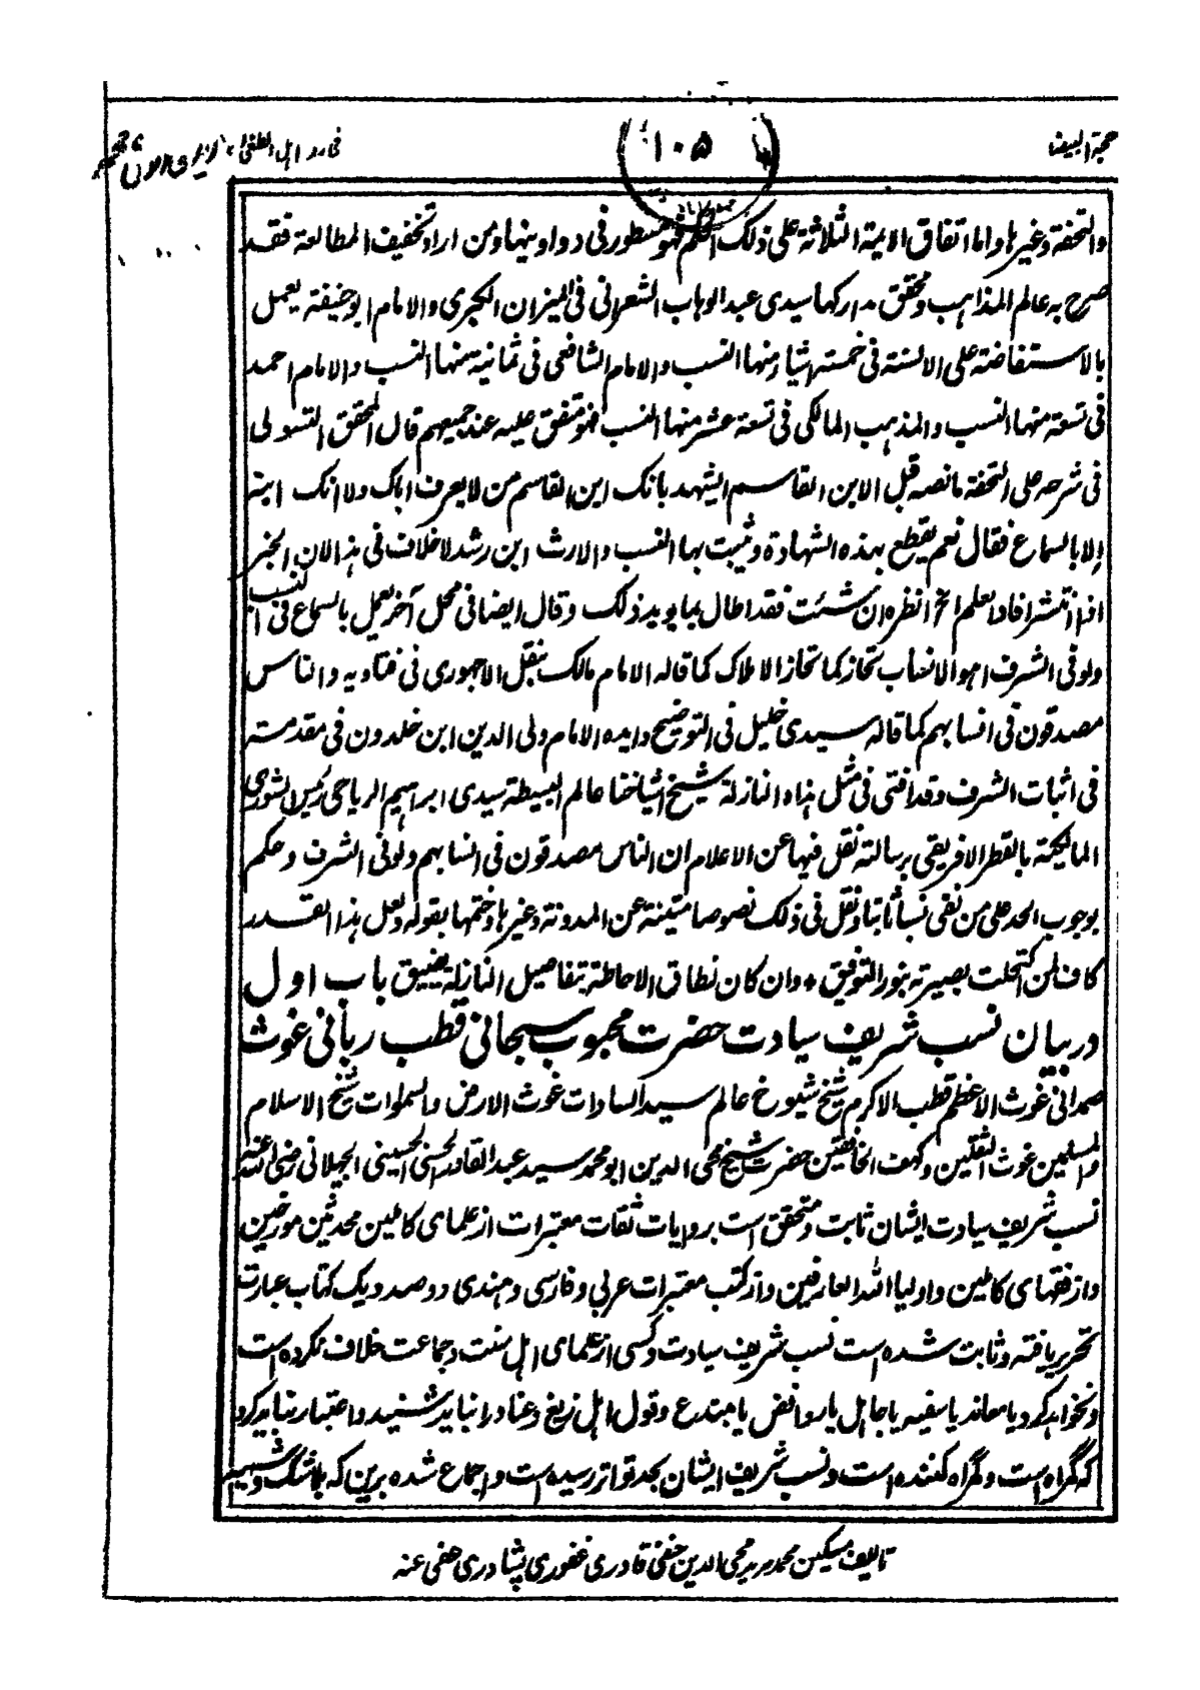 حجة البيضا
١٠٥
فی رد اهل الطغا
والتحفة وغیرها واما اتفاق الایمة الثلاثة علی ذلک الحکم فهو مسطور فی دواوینها ومن اراد تخفیف المطالعة فقد
صرح به عالم المذاهب ومحقق مدارکها سیدی عبد الوهاب الشعرانی فی المیزان الکبری والامام ابو حنیفة یعمل
بالاستفاضة علی الالسنة فی خمسة اشیاء منها النسب والامام الشافعی فی ثمانیة منها النسب والامام احمد
فی تسعة منها النسب والمذهب المالکی فی تسعة عشر منها النسب فهو متفق علیه عند جمیعهم قال المحقق التسولی
فی شرحه علی التحفة ما نصه قیل لابن القاسم ایشهد بانک ابن القاسم من لا یعرف اباک ولا انک ابنه
الا بالسماع فقال نعم یقطع بهذه الشهادة ویثبت بها النسب والارث ابن رشد لا خلاف فی هذا لان الخبر
اذا انتشر افاد العلم الخ انظره ان شئت فقد اطال بما یوید ذلک وقال ایضا فی محل آخر یعمل بالسماع فی النسب
ولو فی الشرف اهو الانساب تحاز کما تحاز الاملاک کما قاله الامام مالک بنقل الاجهوری فی فتاویه والناس
مصدقون فی انسابهم کما قاله سیدی خلیل فی التوضیح وایده الامام ولی الدین ابن خلدون فی مقدمته
فی اثبات الشرف وقد افتی فی مثل هذه النازلة شیخ اشیاخنا عالم البسیطة سیدی ابراهیم الریاحی رئیس الشوری
المالکیة بالقطر الافریقی برسالته نقل فیها عن الاعلام ان الناس مصدقون فی انسابهم ولو فی الشرف وحکم
بوجوب الحد علی من نفی نسبا ثابتا ونقل فی ذلک نصوصا متینة عن المدونة وغیرها وختمها بقوله ولعل هذا القدر
کاف لمن اکتحلت بصیرته بنور التوفیق + وان کان نطاق الاحاطة بتفاصیل النازلة یضیق باب اول
در بیان نسب شریف سیادت حضرت محبوب سبحانی قطب ربانی غوث
صمدانی غوث الاعظم قطب الاکرم شیخ شیوخ عالم سید السادات غوث الارض والسموات شیخ الاسلام
والمسلمین غوث الثقلین وکهف الخافقین حضرت شیخ محی الدین ابو محمد سید عبد القادر الحسنی الحسینی الجیلانی رضی الله عنه
نسب شریف سیادت ایشان ثابت و متحقق است بروایات ثقات معتبرات از علمای کاملین محدثین مورخین
واز فقهای کاملین و اولیا الله العارفین واز کتب معتبرات عربی و فارسی و هندی دو صد و یک کتاب عبارت
تحریر یافته و ثابت شده است نسب شریف سیادت و کسی از علمای اهل سنت و جماعت خلاف نکرده است
ونخواهد کرد یا معاند یا سفیه یا جاهل یا روافض یا مبتدع وقول اهل زیغ و عناد را نباید شنید و اعتبار نباید کرد
که گمراه است و گمراه کننده است ونسب شریف ایشان بحد تواتر رسیده است واجماع شده برین که بلا شک وشبه
تالیف مسکین محمد مرید محی الدین حنفی قادری غفوری پشاوری عفی عنه